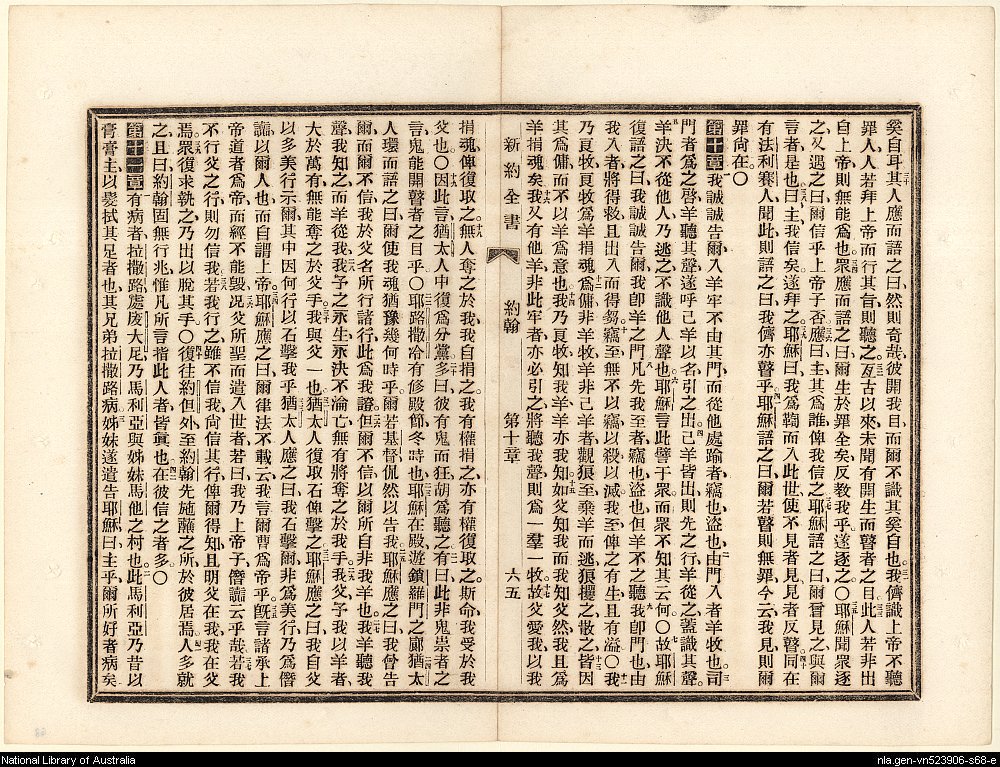 奚自耳其人應而語之曰然則奇哉彼開我目而爾不識其奚自也我儕識上帝不聽
罪人人若拜上帝而行其旨則聽之亙古以來未聞有開生而瞽者之目此人若非出
自上帝則無能爲也眾應而語之曰爾生於罪全矣反教我乎遂逐之○耶穌聞眾逐
之又遇之曰爾信乎上帝子否應曰主其爲誰俾我信之耶穌語之曰爾嘗見之與爾
言者是也曰主我信矣遂拜之耶穌曰我爲鞫而入此世使不見者見見者反瞽同在
有法利賽人聞此則語之曰我儕亦瞽乎耶穌語之曰爾若瞽則無罪今云我見則爾
罪尚在○
第十章我誠誠告爾入羊牢不由其門而從他處踰者竊也盜也由門入者羊牧也司
門者爲之啓羊聽其聲遂呼己羊以名引之出己羊皆出則先之行羊從之蓋識其聲
羊決不從他人乃逃之不識他人聲也耶穌言此譬于眾而眾不知其云何○故耶穌
復語之曰我誠誠告爾我卽羊之門凡先我至者竊也盜也但羊不之聽我卽門也由
我入者將得救且出入而得芻竊至無不以竊以殺以滅我至俾之有生且有溢○我
乃良牧良牧爲羊捐魂爲傭非羊牧羊非己羊者觀狼至棄羊而逃狼攫之散之皆因
其爲傭而不以羊爲意也我乃良牧知我羊羊亦我知如父知我而我知父然我且爲
羊捐魂矣我又有他羊非此牢者亦必引之將聽我聲則爲一羣一牧故父愛我以我
新約全書 約翰 第十章 六五
捐魂俾復取之無人奪之於我我自捐之我有權捐之亦有權復取之斯命我受於我
父也○因此言猶太人中復爲分黨多曰彼有鬼而狂胡爲聽之有曰此非鬼祟者之
言鬼能開瞽者之目乎○耶路撒冷有修殿節冬時也耶穌在殿遊鎖羅門之廊猶太
人環而語之曰爾使我魂猶豫幾何時乎爾若基督侃然以告我耶穌應之曰我曾告
爾而爾不信我於父名所行諸行此爲我證但爾不信以爾所自非我羊也我羊聽我
聲我知之而羊從我我予之永生永決不淪亡無有將奪之於我手我父予我以羊者
大於萬有無能奪之於父手我與父一也猶太人復取石俾擊之耶穌應之曰我自父
以多美行示爾其中因何行以石擊我乎猶太人應之曰我石擊爾非爲美行乃爲僭
讟以爾人也而自謂上帝耶穌應之曰爾律法不載云我言爾曹爲帝乎旣言諸承上
帝道者爲帝而經不能毀况父所聖而遣入世者若曰我乃上帝子僭讟云乎哉若我
不行父之行則勿信我若我行之雖不信我尙信其行俾爾得知且明父在我我在父
焉眾復求執之乃出以脫其手○復往約但外至約翰先施蘸之所於彼居焉人多就
之且曰約翰固無行兆惟凡所言指此人者皆眞也在彼信之者多○
第十一章有病者拉撒路處庋大尼乃馬利亞與姊妹馬他之村也此馬利亞乃昔以
膏膏主以髮拭其足者也其兄弟拉撒路病姊妹遂遣告耶穌曰主乎爾所好者病矣
National Library of Australia
nla.gen-vn523906-s68-e